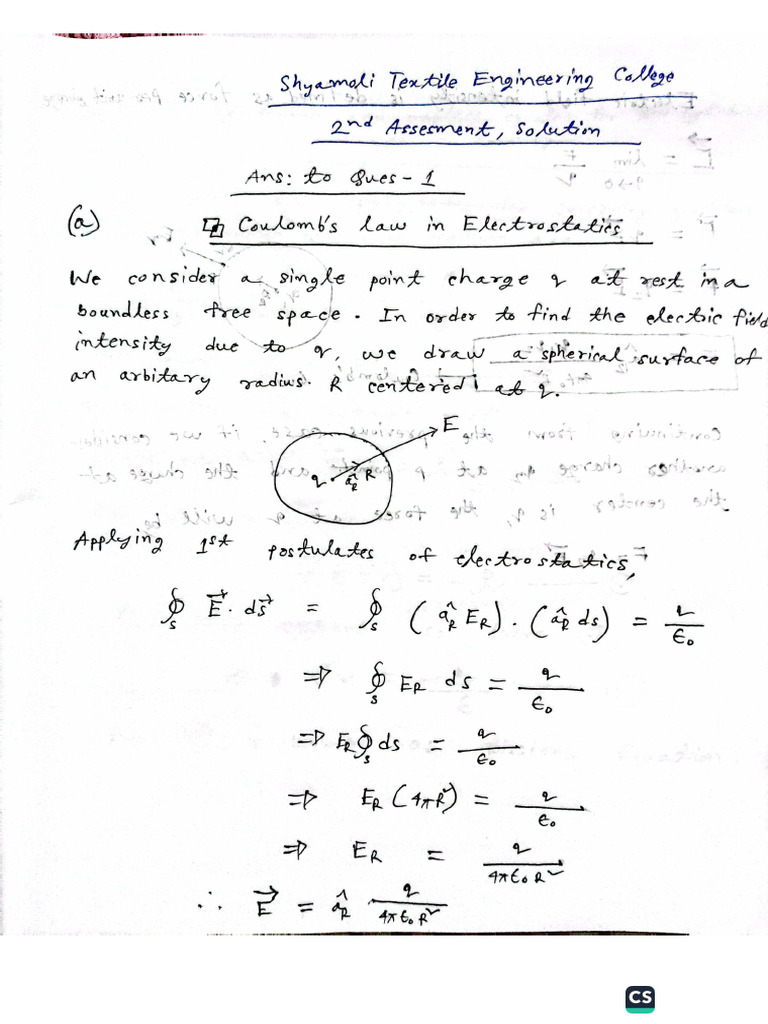 Shyamoli Textile Engineering College
2nd Assesment, Solution
Ans: to Ques-1
(a) Coulomb's law in Electrostatics
We consider a single point charge q at rest in a
boundless free space. In order to find the electric field
intensity due to q, we draw a spherical surface of
an arbitary radius R centered at q.
E
q â_R R
Applying 1st postulates of electrostatics,
∮_S E⃗ · ds⃗ = ∮_S (â_R E_R) · (â_R ds) = q/ϵ₀
⇒ ∮_S E_R ds = q/ϵ₀
⇒ E_R ∮_S ds = q/ϵ₀
⇒ E_R (4πR²) = q/ϵ₀
⇒ E_R = q/4πϵ₀R²
∴ E⃗ = â_R q/4πϵ₀R²
CS